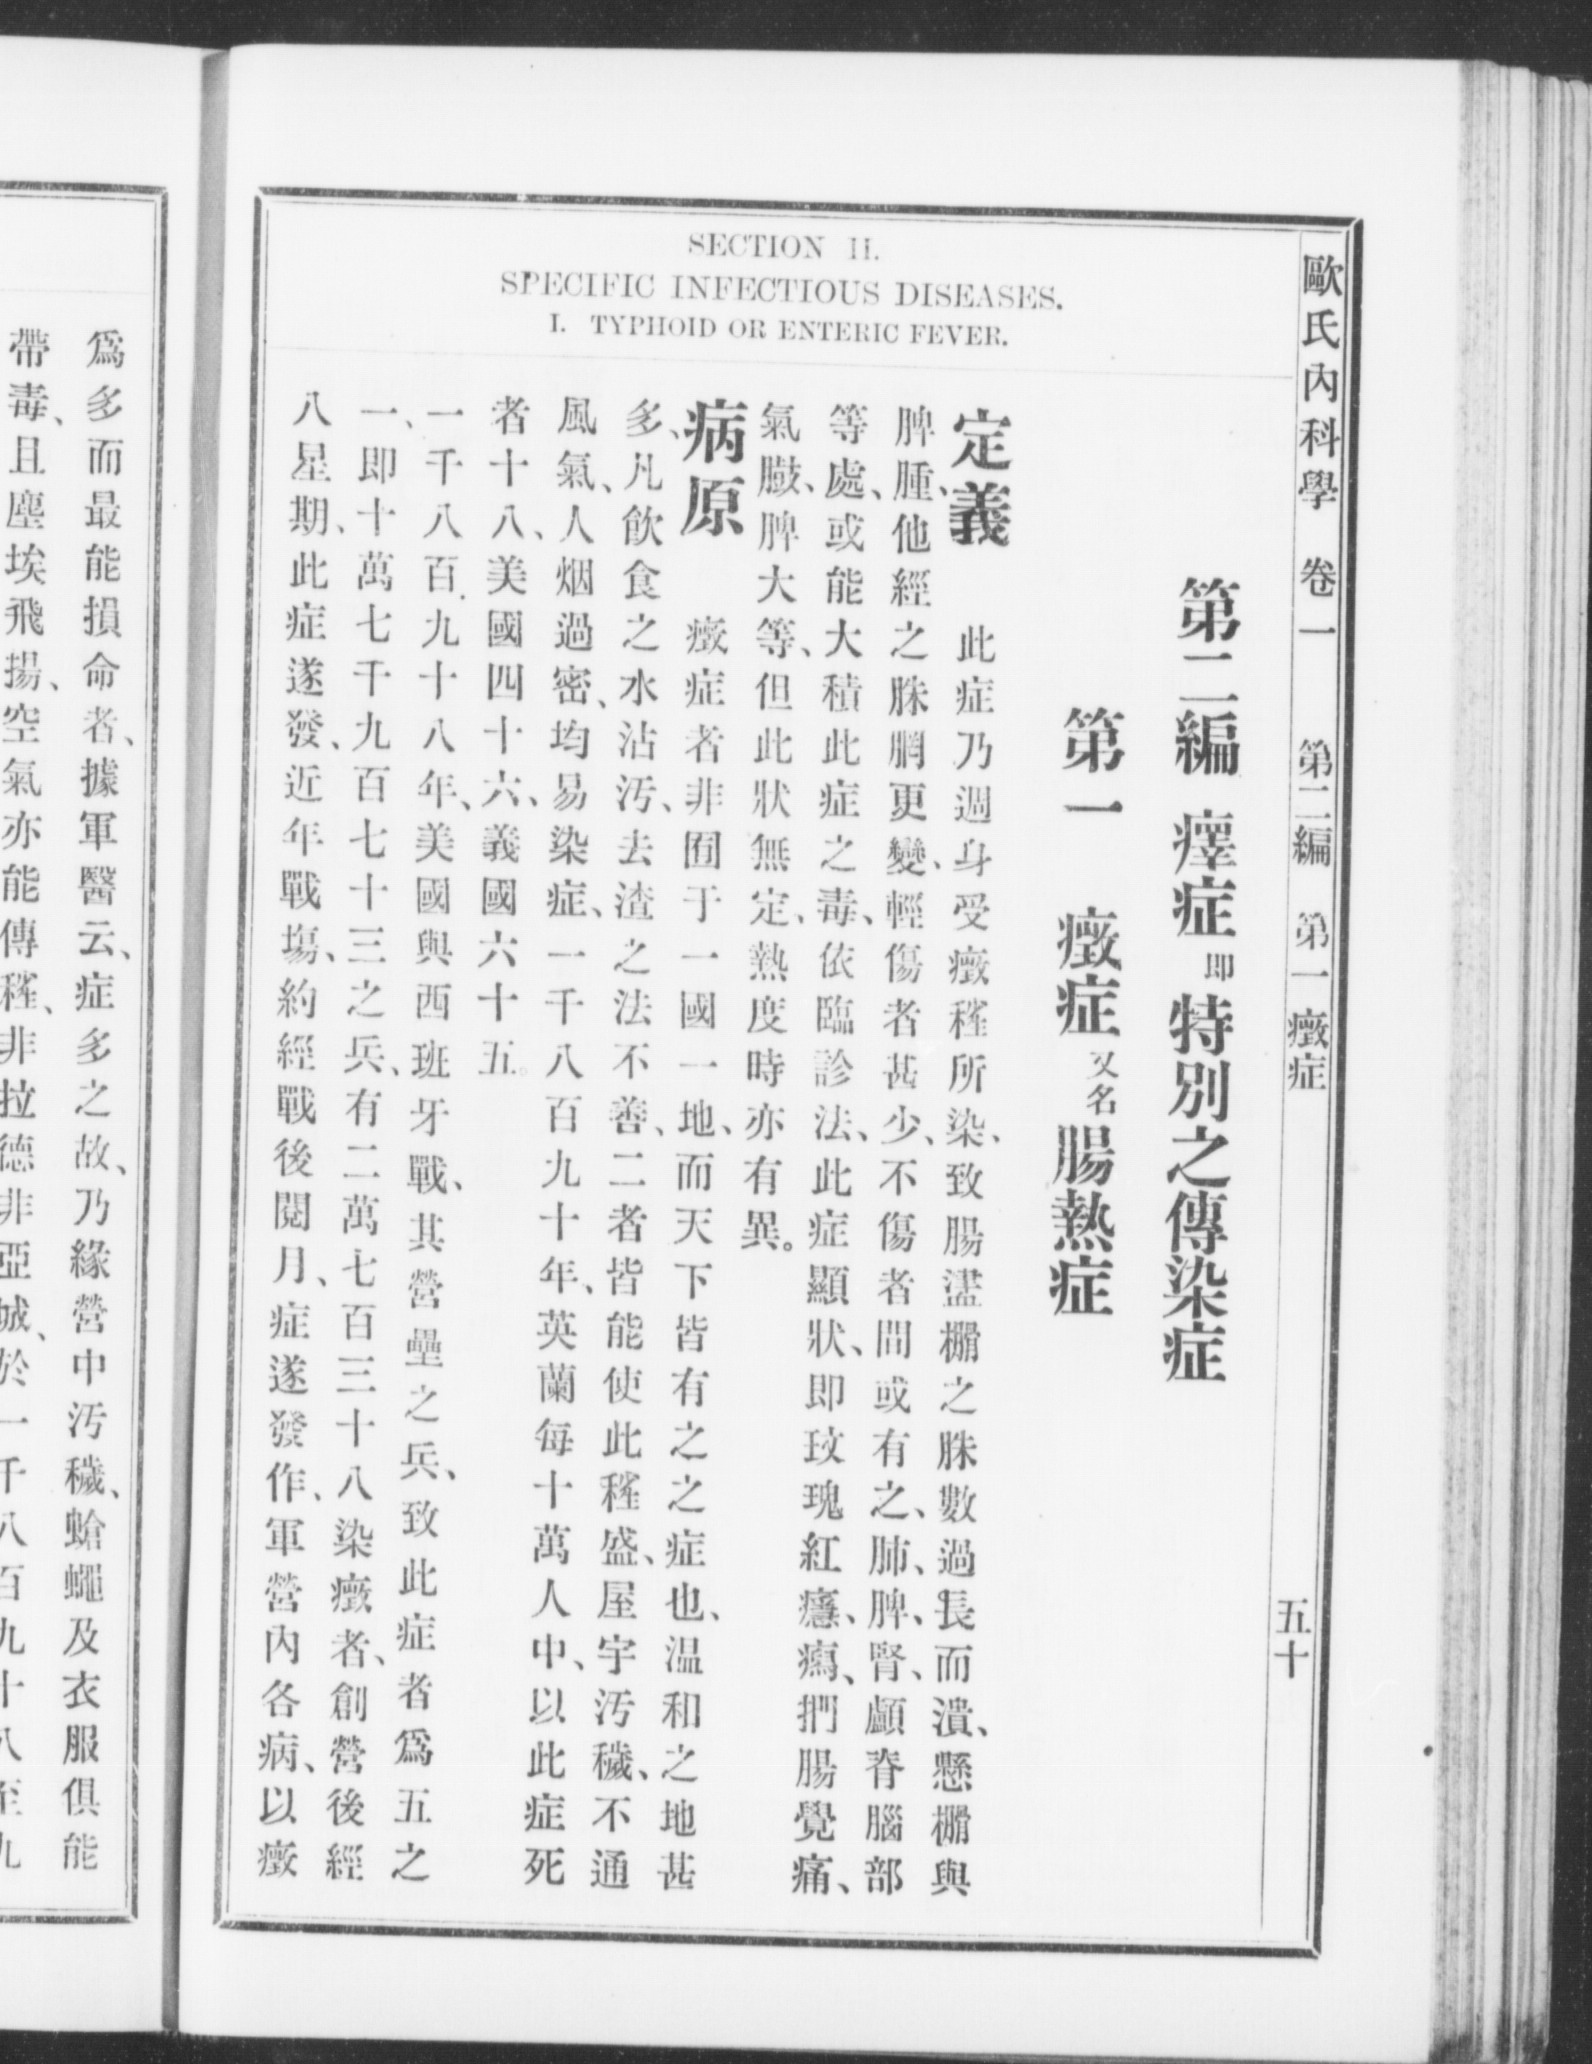 SECTION II.
SPECIFIC INFECTIOUS DISEASES.
I. TYPHOID OR ENTERIC FEVER.
歐氏內科學 卷一 第二編 第一 癥症 五十
第二編 瘴症 即 特別之傳染症
第一 癥症 又名 腸熱症
定義 此症乃週身受癥𥡜所染、致腸盪棚之脨數過長而潰、懸棚與
脾腫、他經之脨膶更變、輕傷者甚少、不傷者間或有之、肺、脾、腎、顱脊腦部
等處、或能大積此症之毒、依臨診法、此症顯狀、即玫瑰紅癮、瘑、捫腸覺痛、
氣臌、脾大等、但此狀無定、熱度時亦有異。
病原 癥症者非囿于一國一地、而天下皆有之之症也、温和之地甚
多、凡飲食之水沾汚、去渣之法不善、二者皆能使此𥡜盛、屋宇汚穢、不通
風氣、人烟過密、均易染症、一千八百九十年、英蘭每十萬人中、以此症死
者十八、美國四十六、義國六十五。
一千八百九十八年、美國與西班牙戰、其營壘之兵、致此症者爲五之
一、即十萬七千九百七十三之兵、有二萬七百三十八染癥者、創營後經
八星期、此症遂發、近年戰塲、約經戰後閱月、症遂發作、軍營內各病、以癥
爲多而最能損命者、據軍醫云、症多之故、乃緣營中汚穢、蝕蠅及衣服俱能
帶毒、且塵埃飛揚、空氣亦能傳𥡜、非拉德非亞城、於一千八百九十八至九